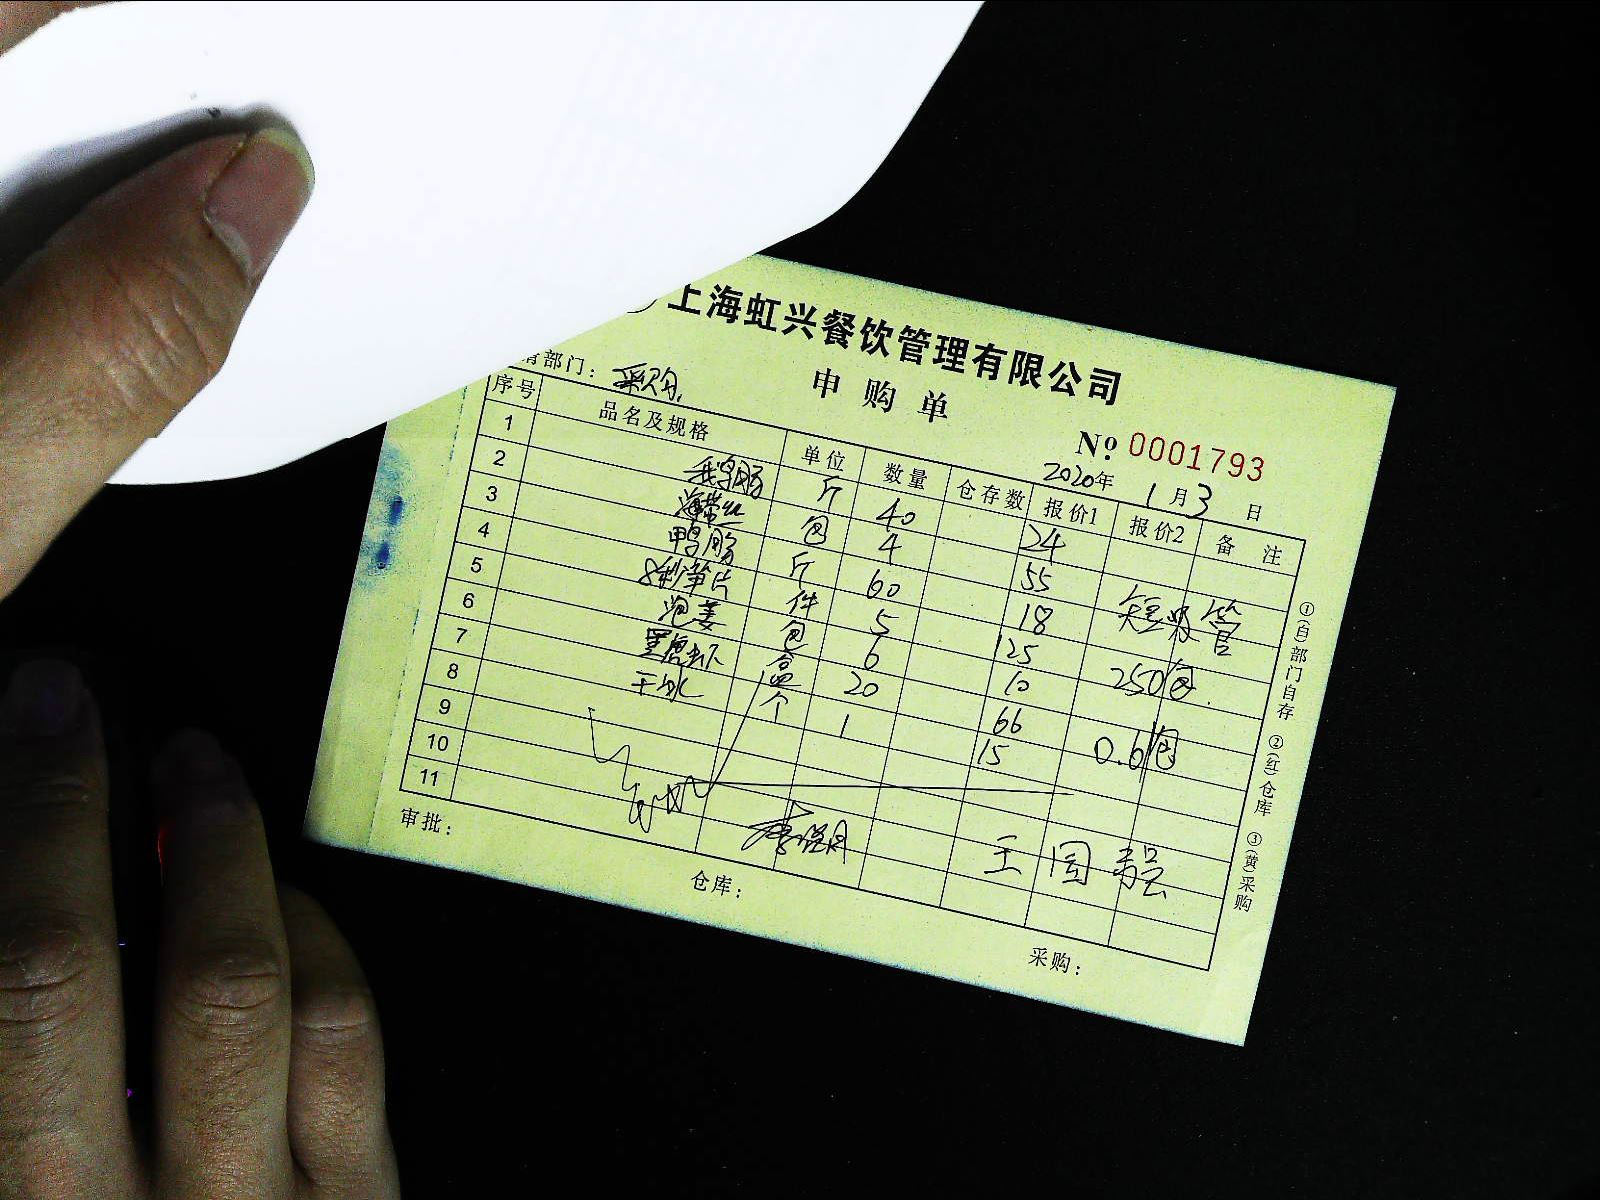 上海虹兴餐饮管理有限公司
申购单
部门：采购
No 0001793
2020年1月3日
序号 品名及规格 单位 数量 仓存数 报价1 报价2 备注
1 鹅肠 斤 40 24
2 海带丝 包 4 55
3 鸭肠 斤 60 18 短吸管
4 笋片 件 5 25
5 泡姜 包 6 10 250包
6 黑虎虾 盒 20 66
7 干冰 个 1 15 0.6/包
8
9
10
11
王国
审批：
仓库：
采购：
①(白)部门自存 ②(红)仓库 ③(黄)采购